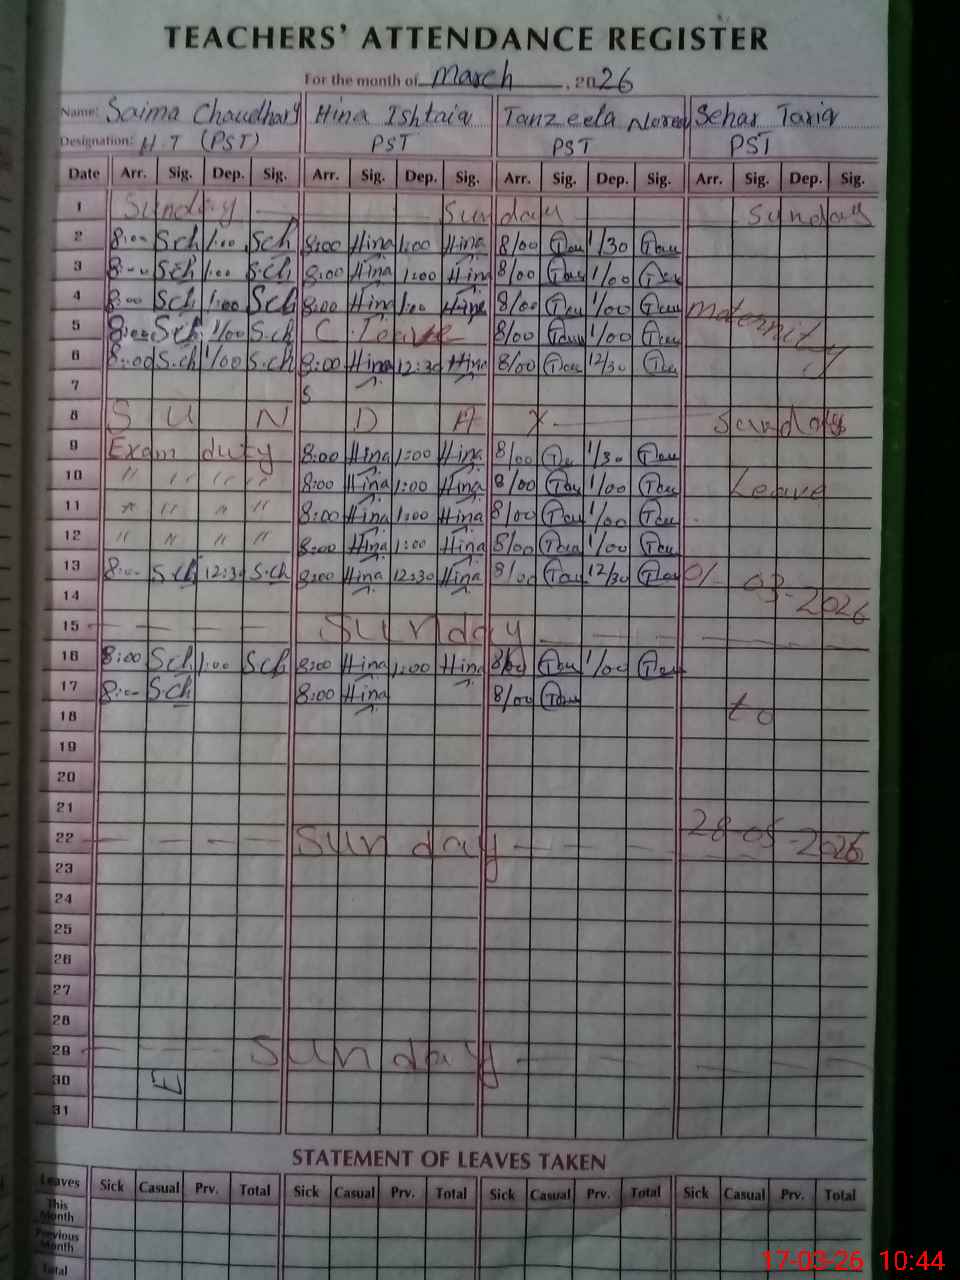 TEACHERS' ATTENDANCE REGISTER
For the month of March, 2026
Name: Saima Chaudhary Hina Ishtaiq Tanzeela Noreen Sehar Tariq
Designation: H.T (PST) PST PST PST
Date Arr. Sig. Dep. Sig. Arr. Sig. Dep. Sig. Arr. Sig. Dep. Sig. Arr. Sig. Dep. Sig.
1 Sunday Sunday Sunday
2 8:00 Sch 1:00 Sch 8:00 Hina 1:00 Hina 8/00 1/30
3 8:00 Sch 1:00 S.ch 8:00 Hina 1:00 Hina 8/00 1/00
4 8:00 Sch 1:00 Sch 8:00 Hina 1:00 Hina 8/00 1/00 Maternity
5 8:00 S.ch 1/00 S.ch C. Leave 8/00 1/00
6 8:00 S.ch 1/00 S.ch 8:00 Hina 12:30 Hina 8/00 12/30
7 S
8 S U N D A Y Sunday
9 Exam duty 8:00 Hina 1:00 Hina 8/00 1/30
10 " " " " 8:00 Hina 1:00 Hina 8/00 1/00 Leave
11 " " " " 8:00 Hina 1:00 Hina 8/00 1/00
12 " " " " 8:00 Hina 1:00 Hina 8/00 1/00
13 8:00 S.ch 12:30 S.ch 8:00 Hina 12:30 Hina 8/00 12/30 01-03-2026
14
15 Sunday
16 8:00 Sch 1:00 Sch 8:00 Hina 1:00 Hina 8/00 1/00
17 8:00 S.ch 8:00 Hina 8/00
18 to
19
20
21
22 Sunday 28-05-2026
23
24
25
26
27
28
29 Sunday
30
31
STATEMENT OF LEAVES TAKEN
Leaves Sick Casual Prv. Total Sick Casual Prv. Total Sick Casual Prv. Total Sick Casual Prv. Total
This Month
Previous Month
Total
17-03-26 10:44